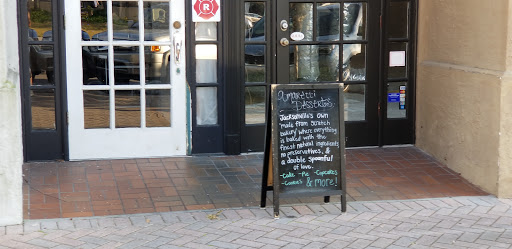 R
Amaretti
Desserts
Jacksonville's own
made from scratch
bakery where everything
is baked with the
finest natural ingredients
no preservatives, &
a double spoonful
of love.
-Cake -Pie -Cupcakes
-Cookies & more!